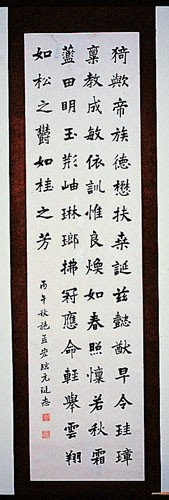 猗歟帝族德懋扶桒誕茲懿猷早令珪璋
稟教成敏依訓惟良煥如春照懍若秋霜
藍田明玉荊岫琳瑯拂冠應命輕舉雲翔
如松之欝如桂之芳
丙午秋